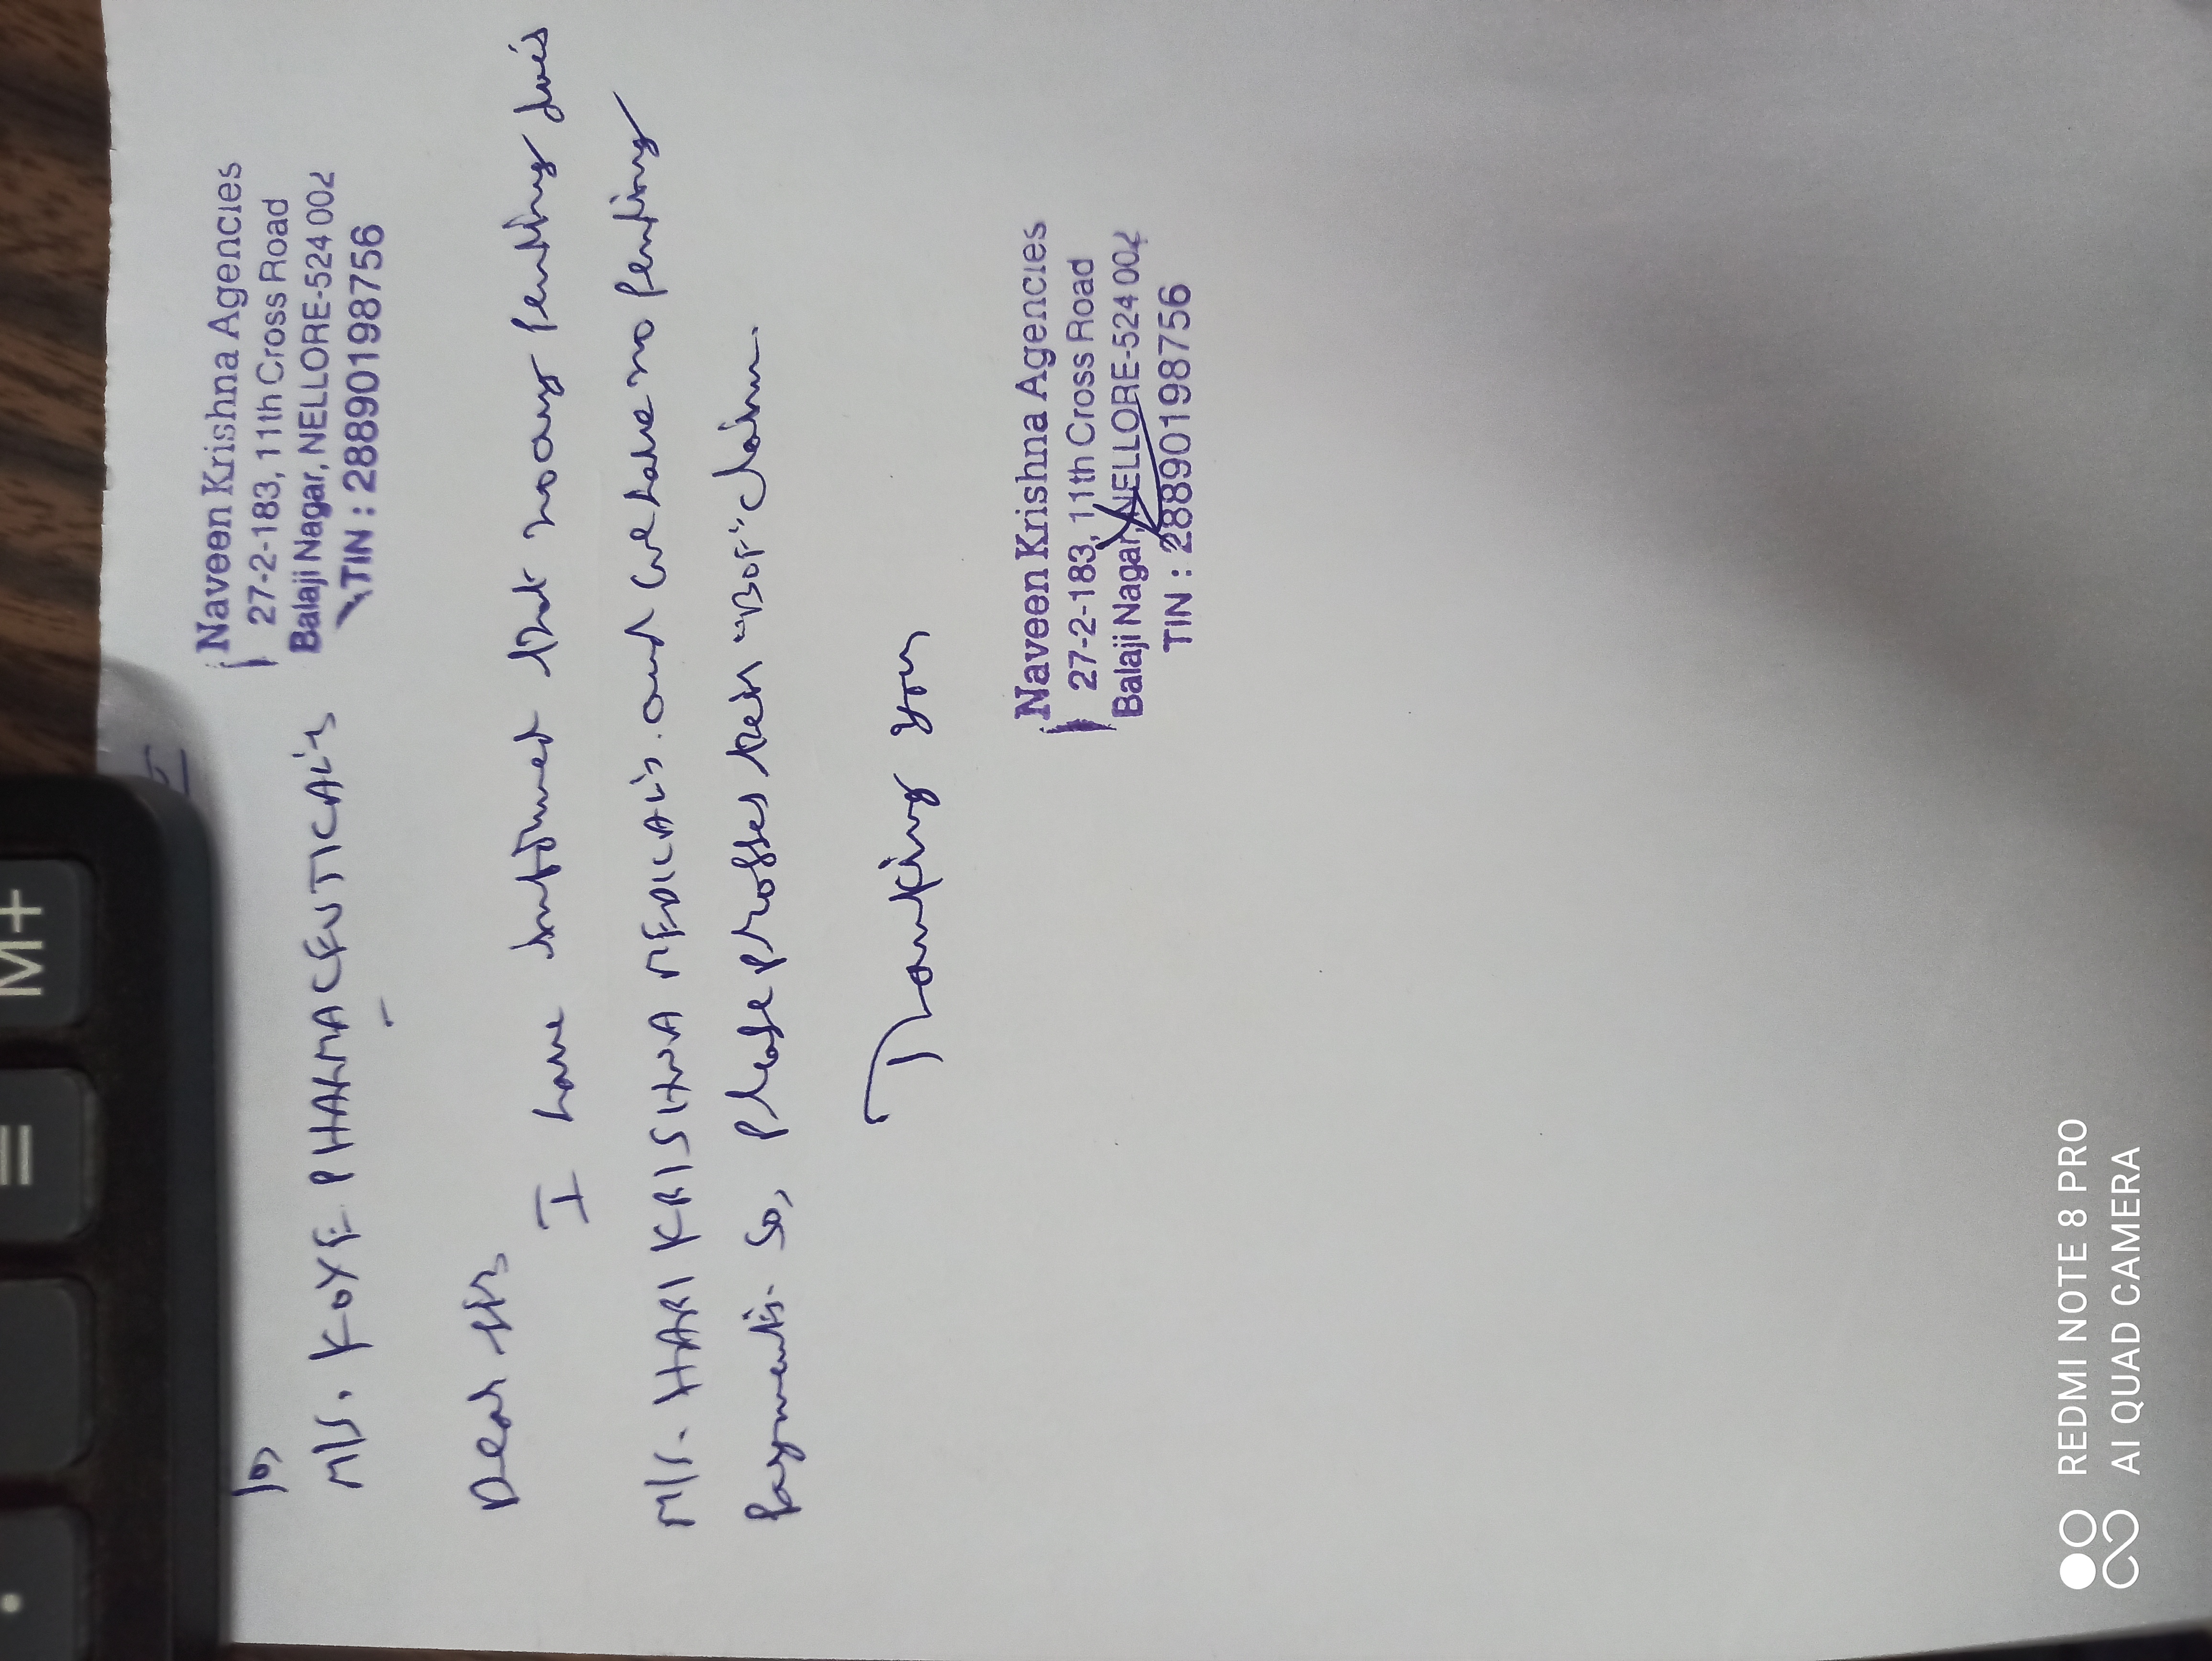 Naveen Krishna Agencies
27-2-183, 11th Cross Road
Balaji Nagar, NELLORE-524 002
TIN : 28890198756
To,
M/s. KOYE PHARMACEUTICAL's
Dear Sir
I have informed that no any pending dues
M/s. HARI KRISHNA MEDICAL's. and we have no pending
payments. So, please proses their "BOF" claim.
Thanking you
Naveen Krishna Agencies
27-2-183, 11th Cross Road
Balaji Nagar, NELLORE-524 002
TIN : 28890198756
M+
=
.
REDMI NOTE 8 PRO
AI QUAD CAMERA